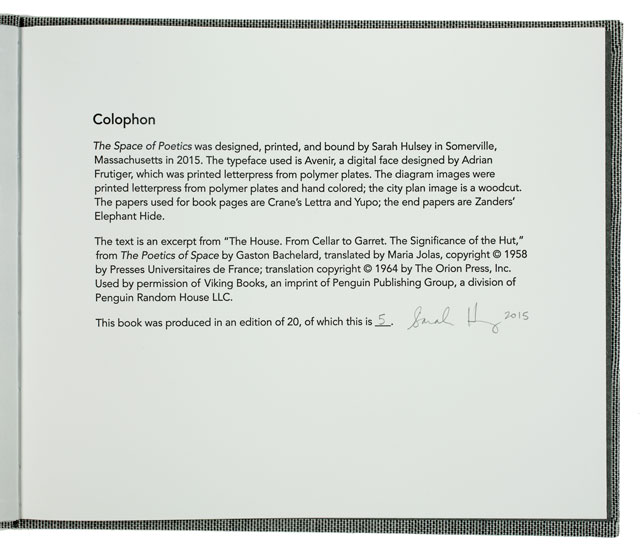 Colophon
The Space of Poetics was designed, printed, and bound by Sarah Hulsey in Somerville,
Massachusetts in 2015. The typeface used is Avenir, a digital face designed by Adrian
Frutiger, which was printed letterpress from polymer plates. The diagram images were
printed letterpress from polymer plates and hand colored; the city plan image is a woodcut.
The papers used for book pages are Crane's Lettra and Yupo; the end papers are Zanders'
Elephant Hide.
The text is an excerpt from "The House. From Cellar to Garret. The Significance of the Hut,"
from The Poetics of Space by Gaston Bachelard, translated by Maria Jolas, copyright © 1958
by Presses Universitaires de France; translation copyright © 1964 by The Orion Press, Inc.
Used by permission of Viking Books, an imprint of Penguin Publishing Group, a division of
Penguin Random House LLC.
This book was produced in an edition of 20, of which this is 5. Sarah 2015